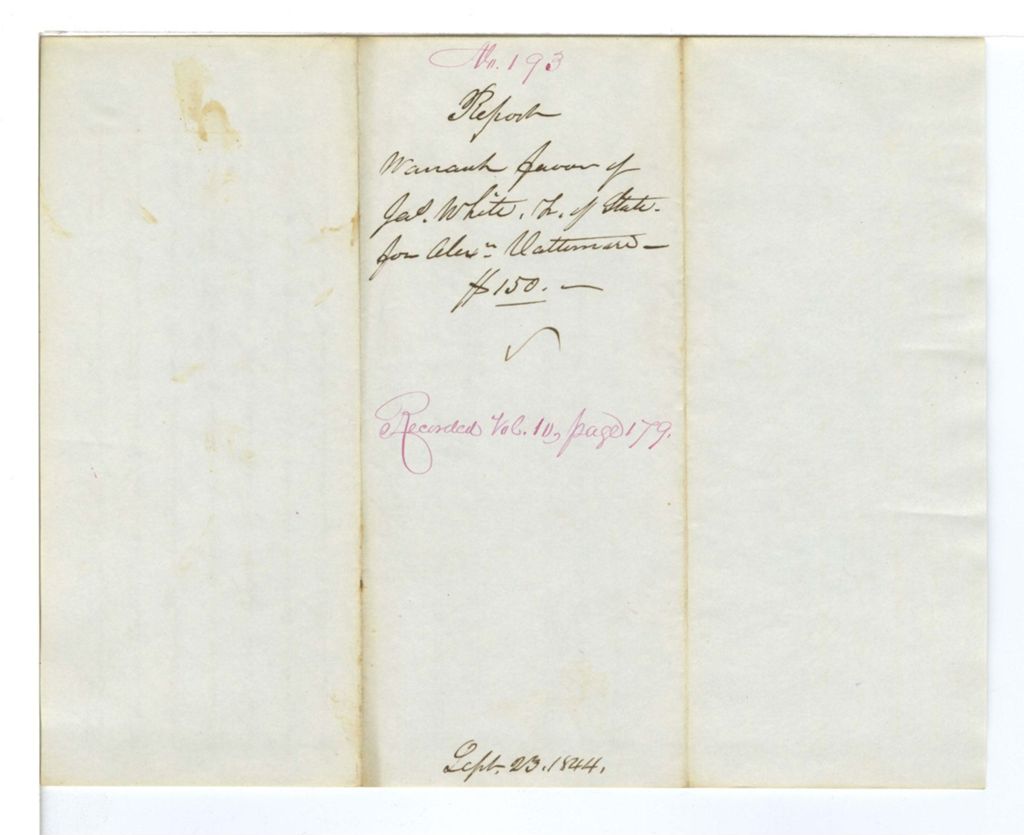 No. 193
Report
Warrant favor of
Jas. White, T. of State.
for Alexr. Vattemare—
$150.—
Recorded Vol. 10, page 179.
Sept. 23. 1844.